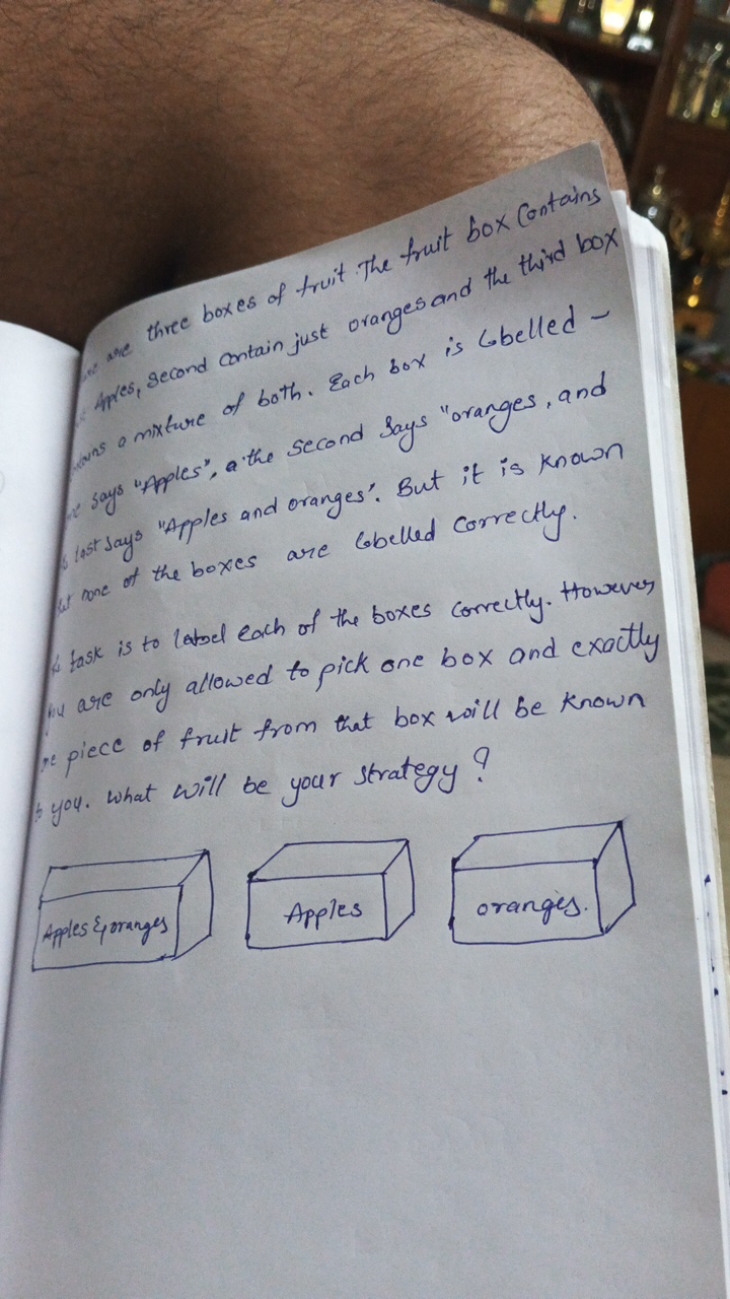 are three boxes of fruit. The fruit box Contains
Apples, second Contain just oranges and the third box
a mixture of both. Each box is labelled -
says "Apples", a the second says "oranges, and
last says "Apples and oranges". But it is known
none of the boxes are labelled Correctly.
task is to label each of the boxes Correctly. However
you are only allowed to pick one box and exactly
piece of fruit from that box will be known
you. What will be your strategy?
Apples & oranges
Apples
oranges.